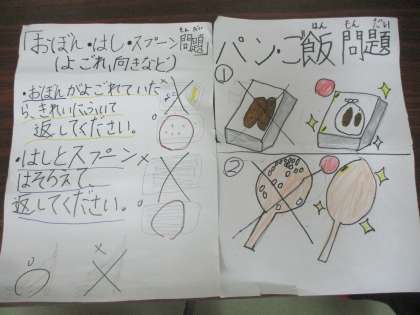 「おぼん・はし・スプーン問題」
もんだい
(よごれ、向きなど)
・おぼんがよごれていた
ら、きれいにふいて
返してください。
・はしとスプーン
はそろえて
返してください。
パン・ご飯問題
はん もん だい
①
②